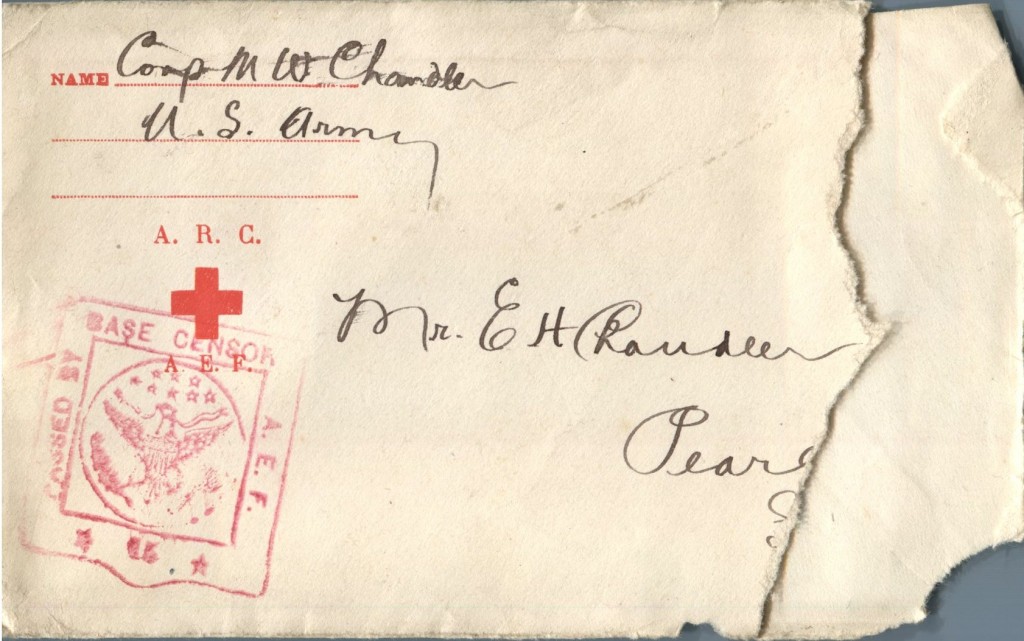 NAME Corp M W. Chandler
U. S. Army
A. R. C.
A. E. F.
PASSED BY
BASE CENSOR
A. E. F.
Mr. E H Chandler
Pear